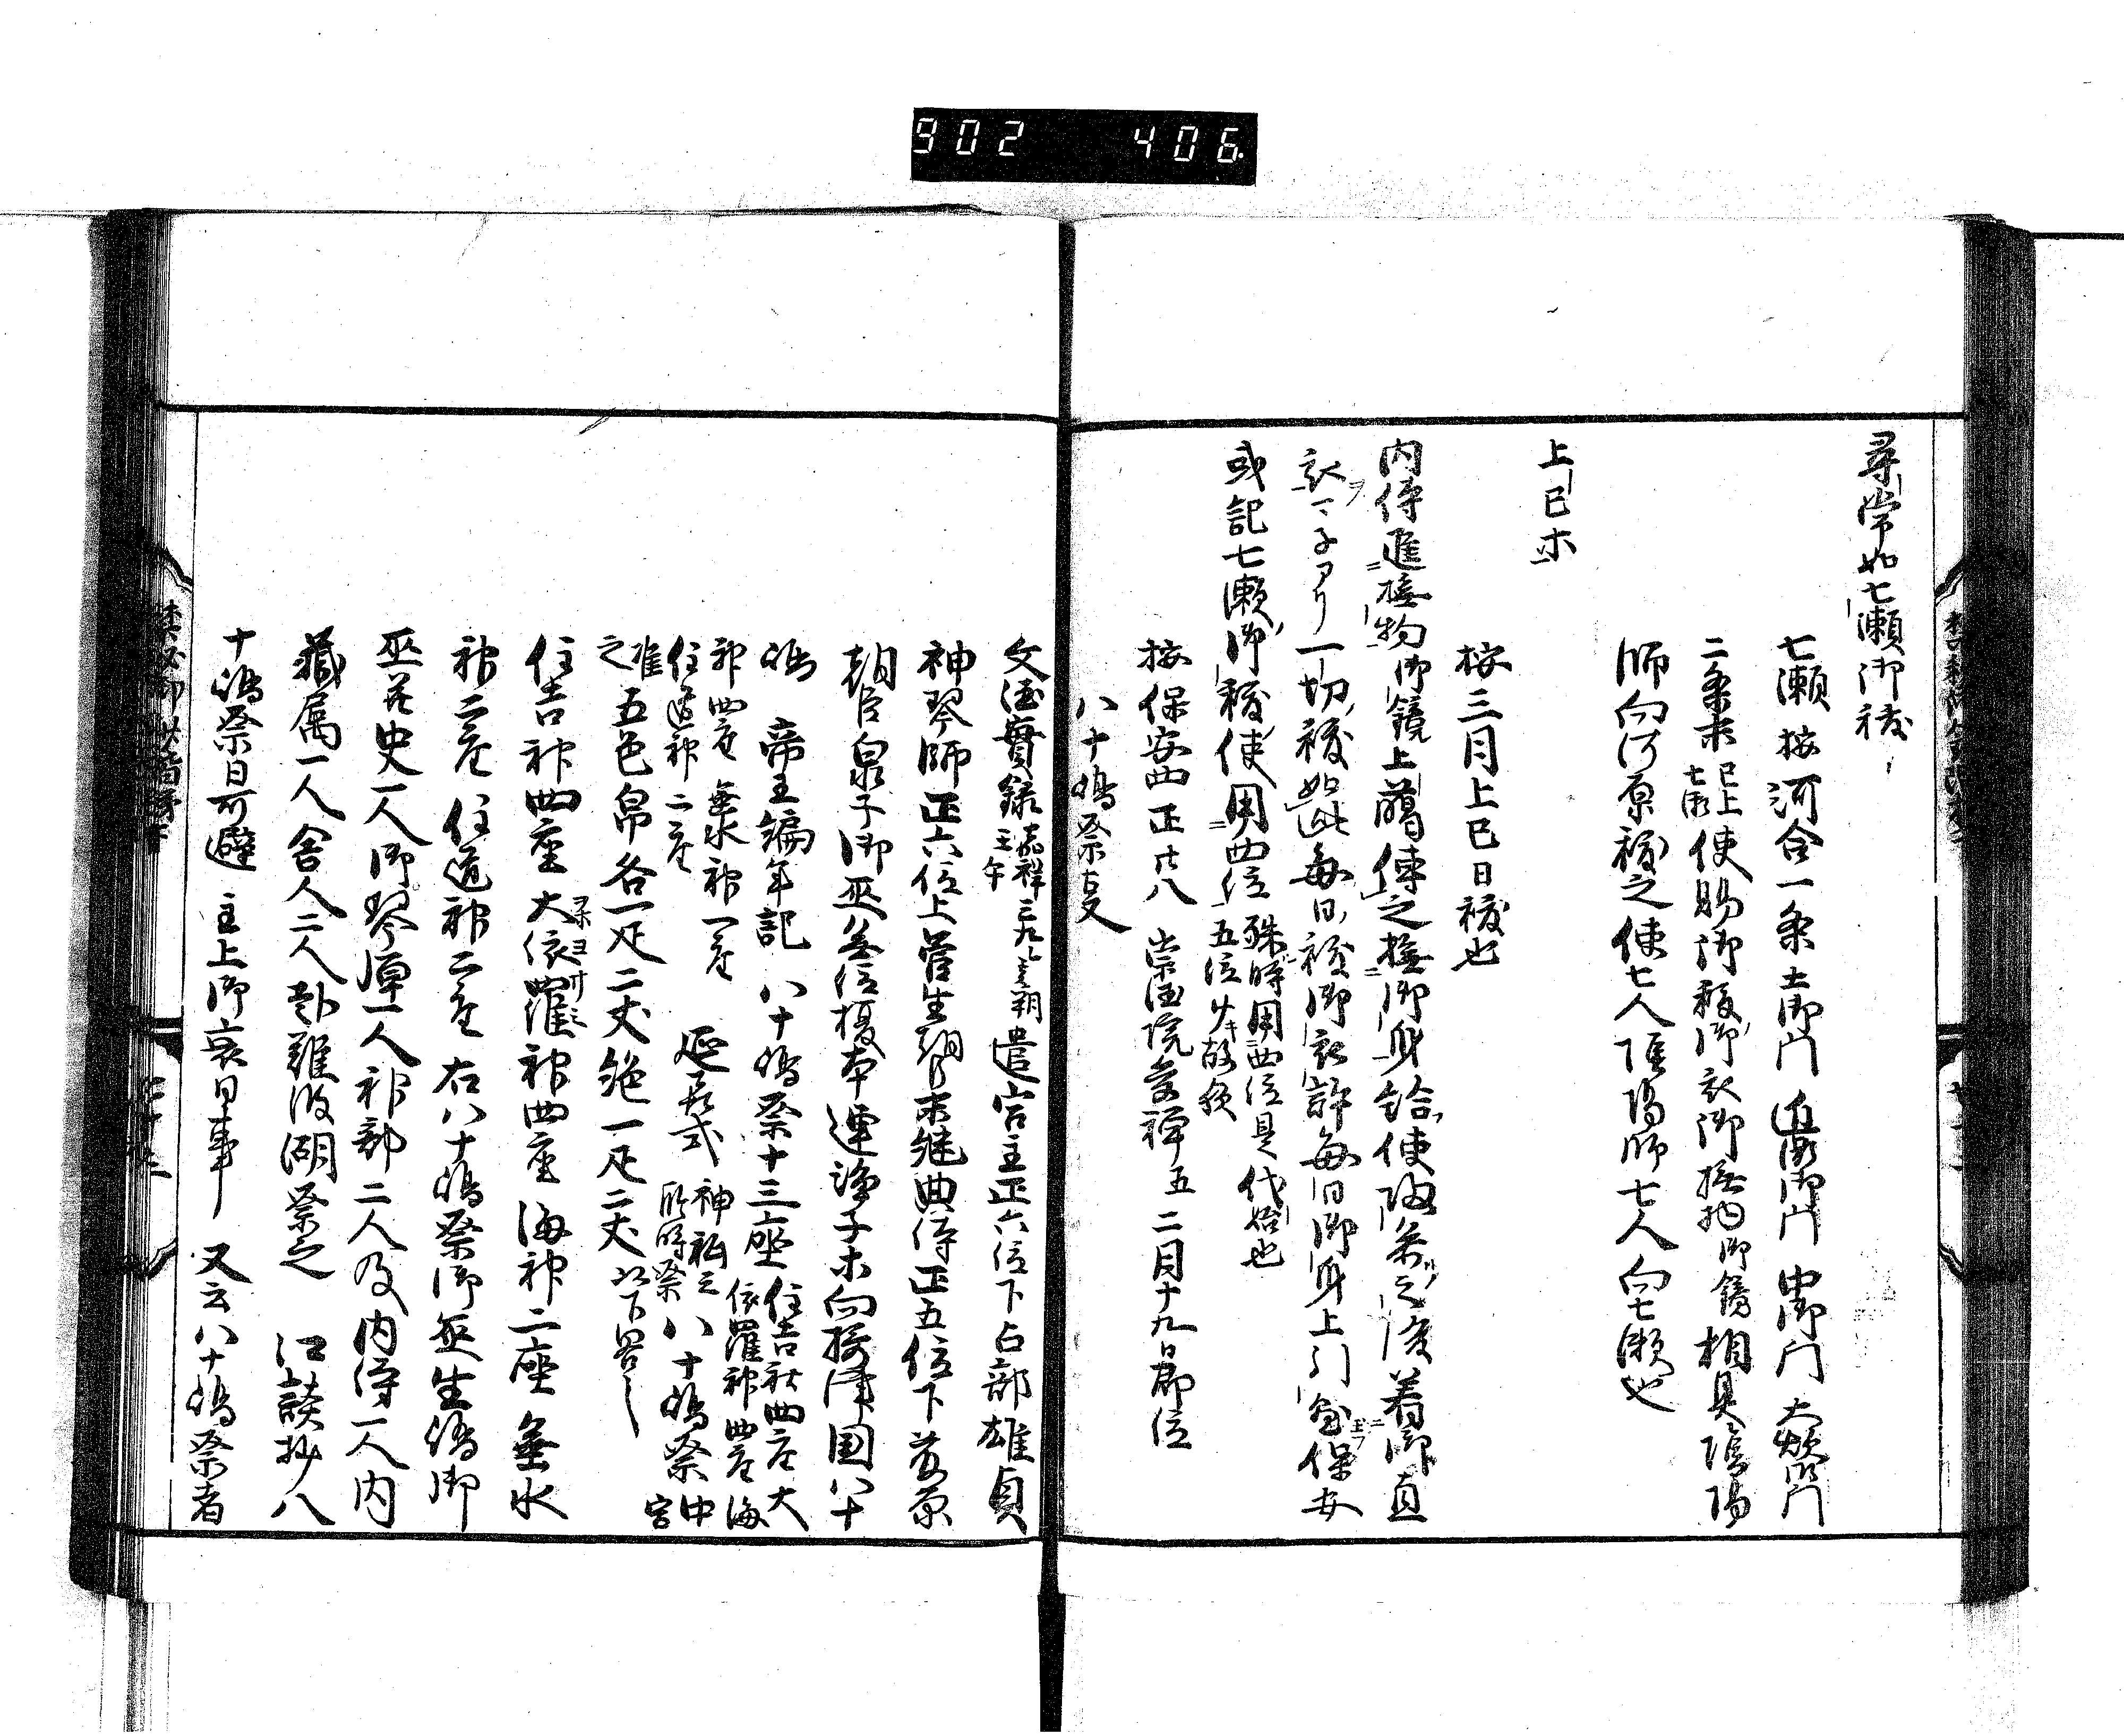 902 406
尋常如七瀬御祓
七瀬 按河合一条土御門近衛御門中御門大炊御門
二条末已上七瀬使賜御祓御衣御撫物御鏡相具陰陽
師向河原祓之使七人陰陽師七人向七瀬也
上巳ホ
按三月上巳日祓也
内侍進撫物御鏡上臈傳之撫御身給使帰参之後着御直
衣マ子アリ一切祓如此毎日祓御衣許毎日御身上
保安
或記七瀬御祓使用四位殊時用四位是代始也五位
按保安四正廿八崇徳院受禅五二月十九日即位
八十嶋祭事
文徳實録嘉祥三九壬午朔遣宮主正六位下占部雄貞
神琴師正六位上菅生朝臣末継典侍正五位下藤原
朝臣泉子御巫无位榎本連浄子ホ向摂津国八十
嶋 帝王編年記 八十嶋祭十三座住吉社四座大依羅神四座海
神二座垂水神一座住道神二座 延喜式神祇三臨時祭八十嶋祭中宮
准之五色帛各一疋二丈絁一疋二丈以下畧之
住吉神四座 大依羅神四座 海神二座 垂水
神二座 住道神二座 右八十嶋祭御巫生嶋御
巫并史一人御琴弾一人神部二人及内侍一人内
蔵属一人舎人二人赴難波湖祭之 江談抄八
十嶋祭日可避 主上御衰日事 又云八十嶋祭者